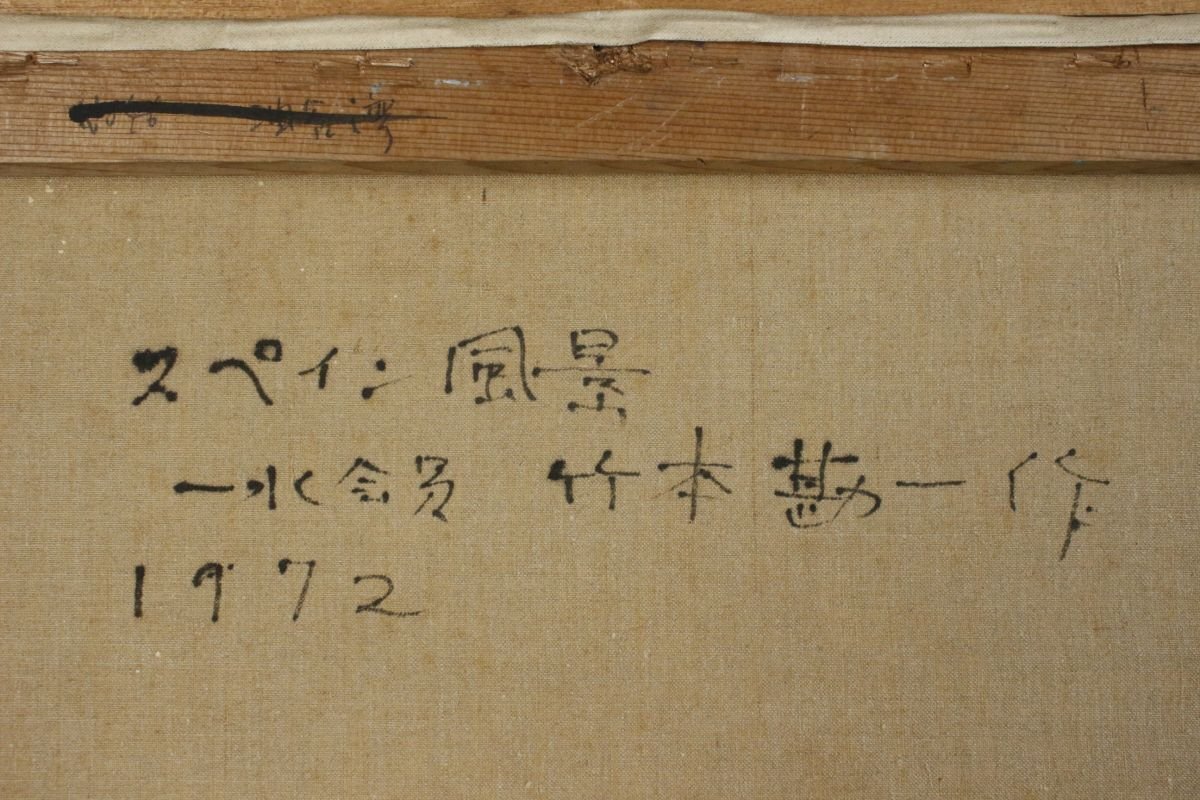 スペイン風景
一水会員 竹本勘一作
1972